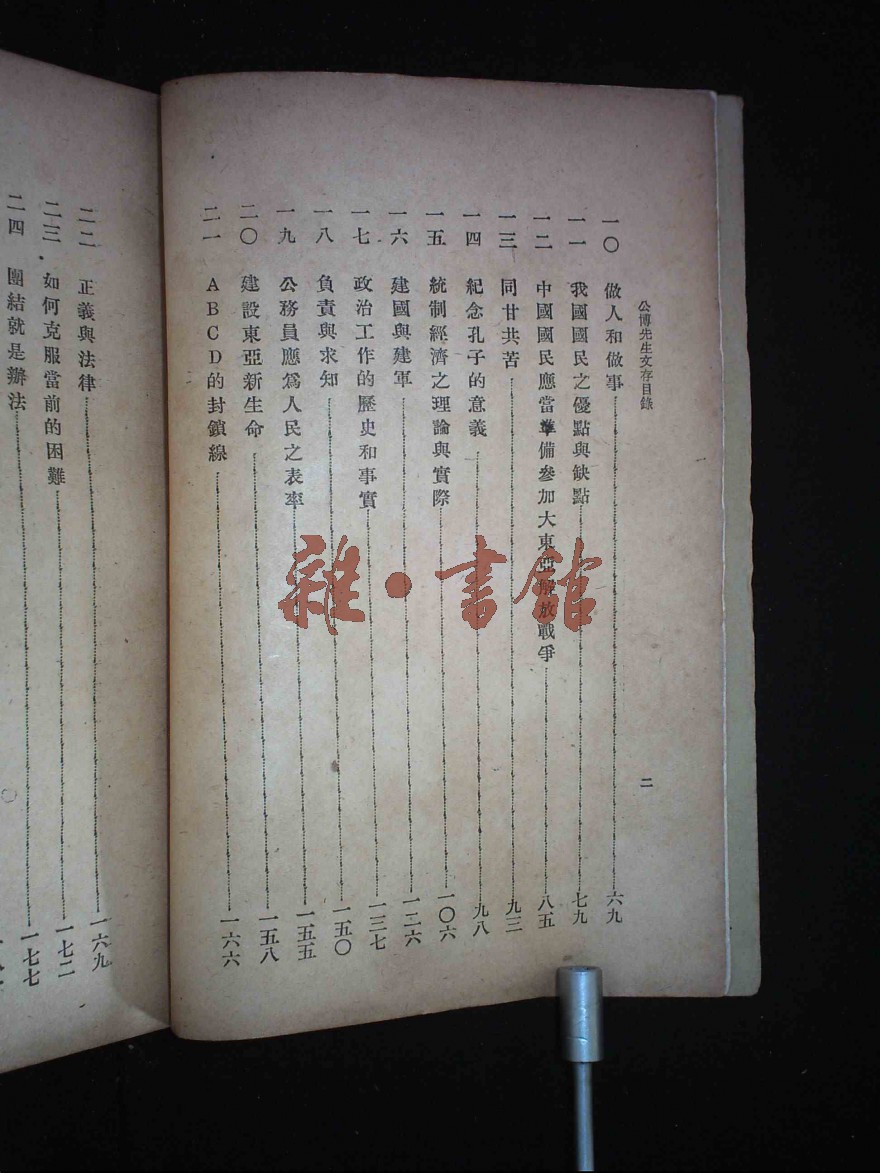 公博先生文存目錄
二
一〇 做人和做事 六九
一一 我國國民之優點與缺點 七九
一二 中國國民應當準備參加大東亞解放戰爭 八五
一三 同甘共苦 九三
一四 紀念孔子的意義 九八
一五 統制經濟之理論與實際 一〇六
一六 建國與建軍 一二六
一七 政治工作的歷史和事實 一三七
一八 負責與求知 一五〇
一九 公務員應爲人民之表率 一五五
二〇 建設東亞新生命 一五八
二一 ABCD的封鎖線 一六六
二二 正義與法律 一六九
二三 如何克服當前的困難 一七二
二四 團結就是辦法 一七七
雜·書館